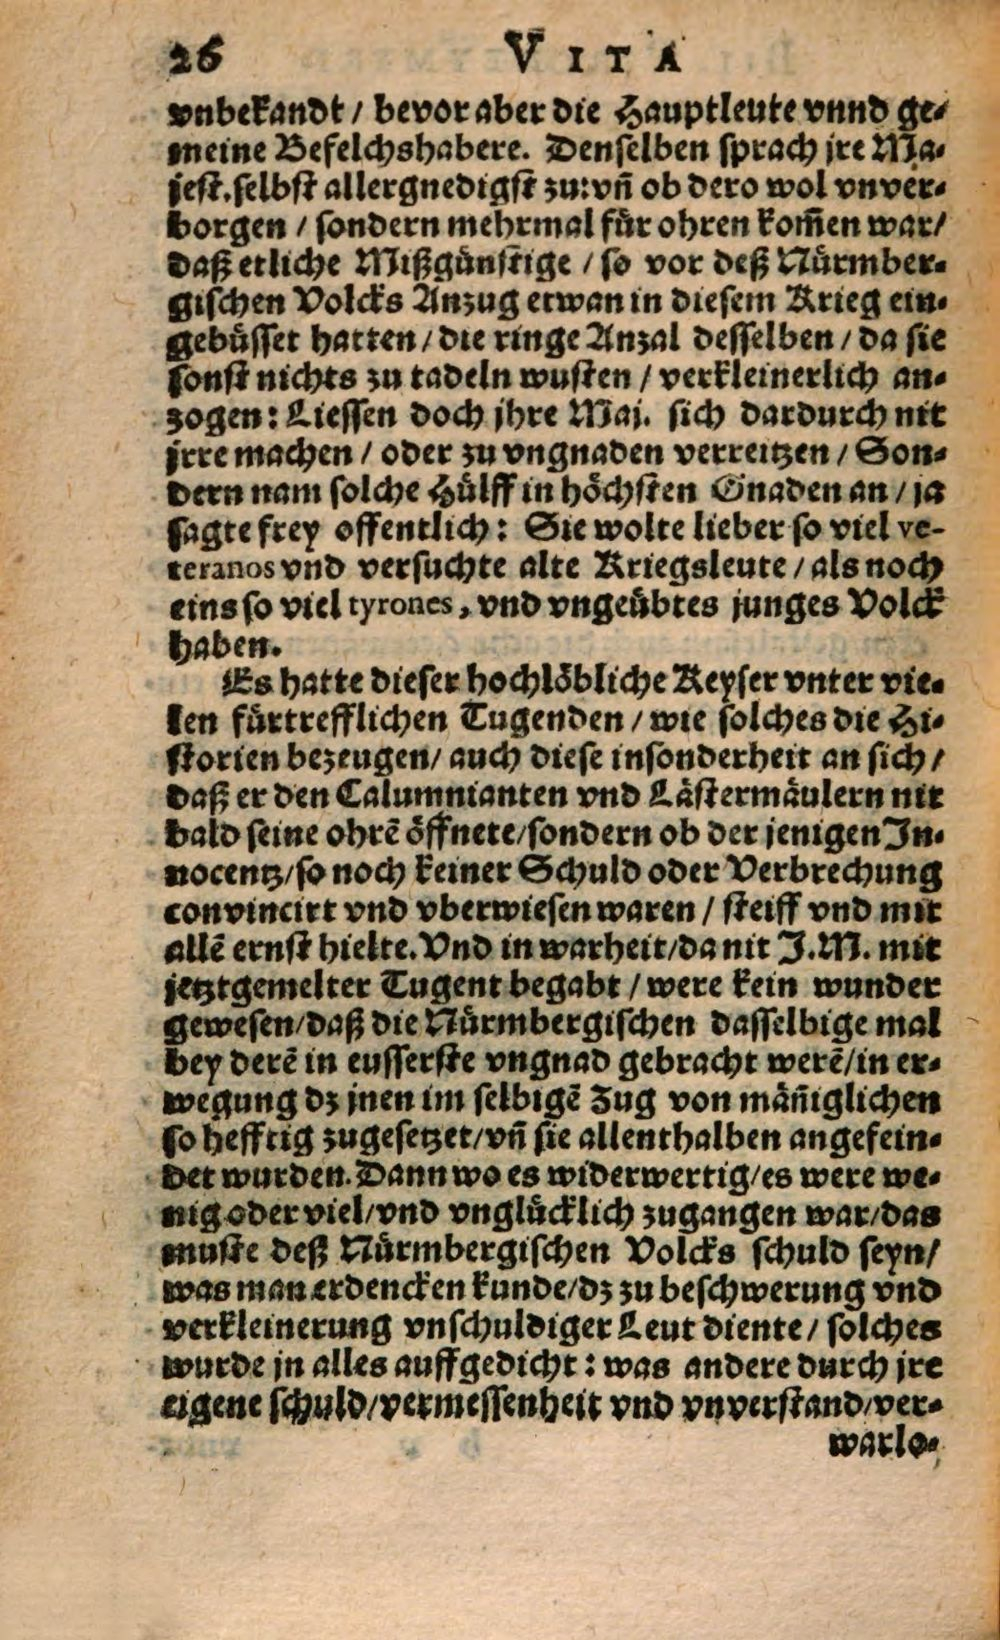 26 VITA
vnbekandt / bevor aber die Hauptleute vnnd ge-
meine Befelchshabere. Denselben sprach jre Ma-
jest. selbst allergnedigst zu: vn̄ ob dero wol vnver-
borgen / sondern mehrmal fuͤr ohren kom̄en war/
daß etliche Mißguͤnstige / so vor deß Nuͤrmber-
gischen Volcks Anzug etwan in diesem Krieg ein-
gebuͤsset hatten / die ringe Anzal desselben / da sie
sonst nichts zu tadeln wusten / verkleinerlich an-
zogen: Liessen doch jhre Maj. sich dardurch nit
jrre machen / oder zu vngnaden verreitzen / Son-
dern nam solche Huͤlff in hoͤchsten Gnaden an / ja
sagte frey offentlich: Sie wolte lieber so viel ve-
teranos vnd versuchte alte Kriegsleute / als noch
eins so viel tyrones, vnd vngeuͤbtes junges Volck
haben.
Es hatte dieser hochloͤbliche Keyser vnter vie-
len fuͤrtrefflichen Tugenden / wie solches die Hi-
storien bezeugen/ auch diese insonderheit an sich /
daß er den Calumnianten vnd Laͤstermaͤulern nit
bald seine ohrē oͤffnete/sondern ob der jenigen In-
nocentz/so noch keiner Schuld oder Verbrechung
convincirt vnd vberwiesen waren / steiff vnd mit
allē ernst hielte. Vnd in warheit/da nit J.M. mit
jetztgemelter Tugent begabt / were kein wunder
gewesen/daß die Nuͤrmbergischen dasselbige mal
bey derē in eusserste vngnad gebracht werē/in er-
wegung dz jnen im selbigē Zug von maͤn̄iglichen
so hefftig zugesetzet/vn̄ sie allenthalben angefein-
det wurden. Dann wo es widerwertig/es were we-
nig oder viel/vnd vngluͤcklich zugangen war/das
muste deß Nuͤrmbergischen Volcks schuld seyn/
was man erdencken kunde/dz zu beschwerung vnd
verkleinerung vnschuldiger Leut diente / solches
wurde jn alles auffgedicht: was andere durch jre
eigene schuld/vermessenheit vnd vnverstand/ver-
warlo-